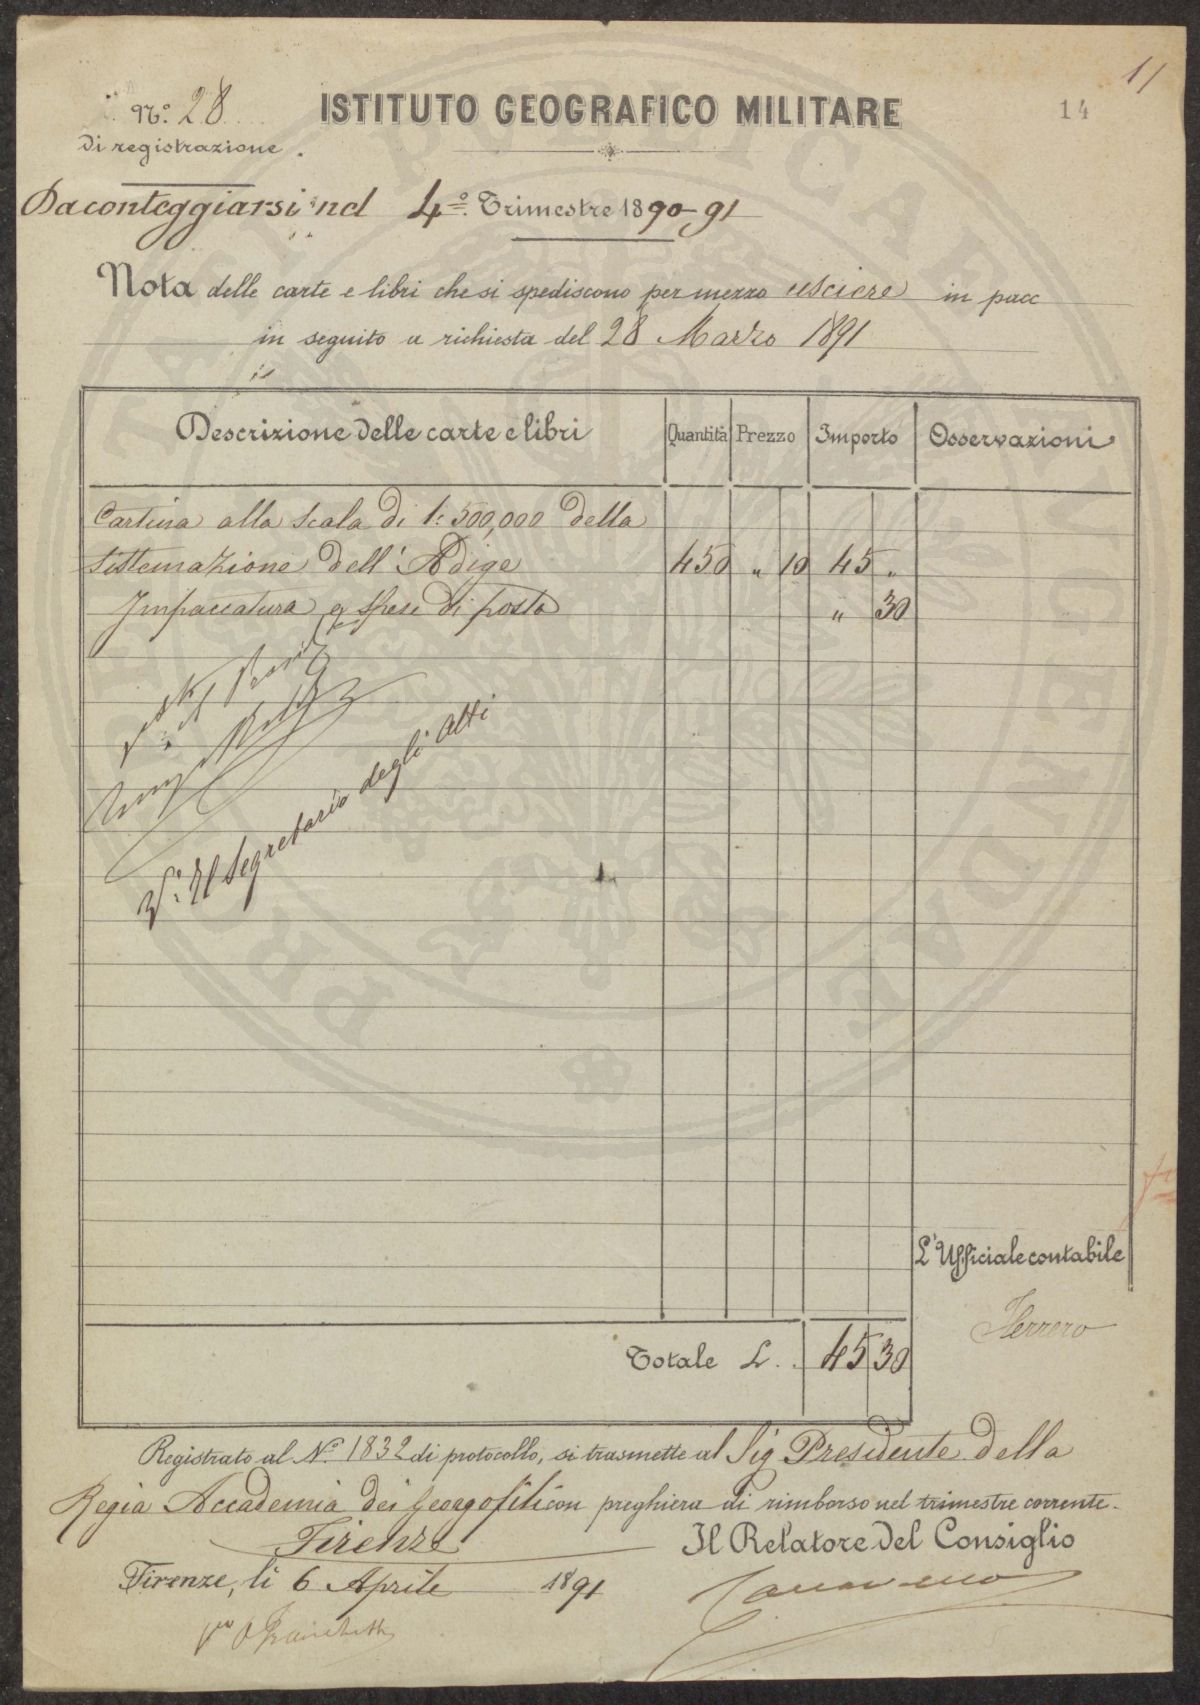 11
14
No. 28
di registrazione
ISTITUTO GEOGRAFICO MILITARE
Da conteggiarsi nel 4o. Trimestre 1890-91
Nota delle carte e libri che si spediscono per mezzo usciere in pacc
in seguito a richiesta del 28 Marzo 1891
Descrizione delle carte e libri Quantità Prezzo Importo Osservazioni
Cartina alla scala di 1:500,000 della
sistemazione dell'Adige 450 " 10 45 "
Impaccatura e spese di posta " 30
Vo. Il Segretario degli Atti
L'Ufficiale contabile
Ferrero
Totale L. 45 30
Registrato al No. 1832 di protocollo, si trasmette al Sig Presidente della
Regia Accademia dei Georgofili con preghiera di rimborso nel trimestre corrente.
Firenze
Il Relatore del Consiglio
Firenze, li 6 Aprile 1891